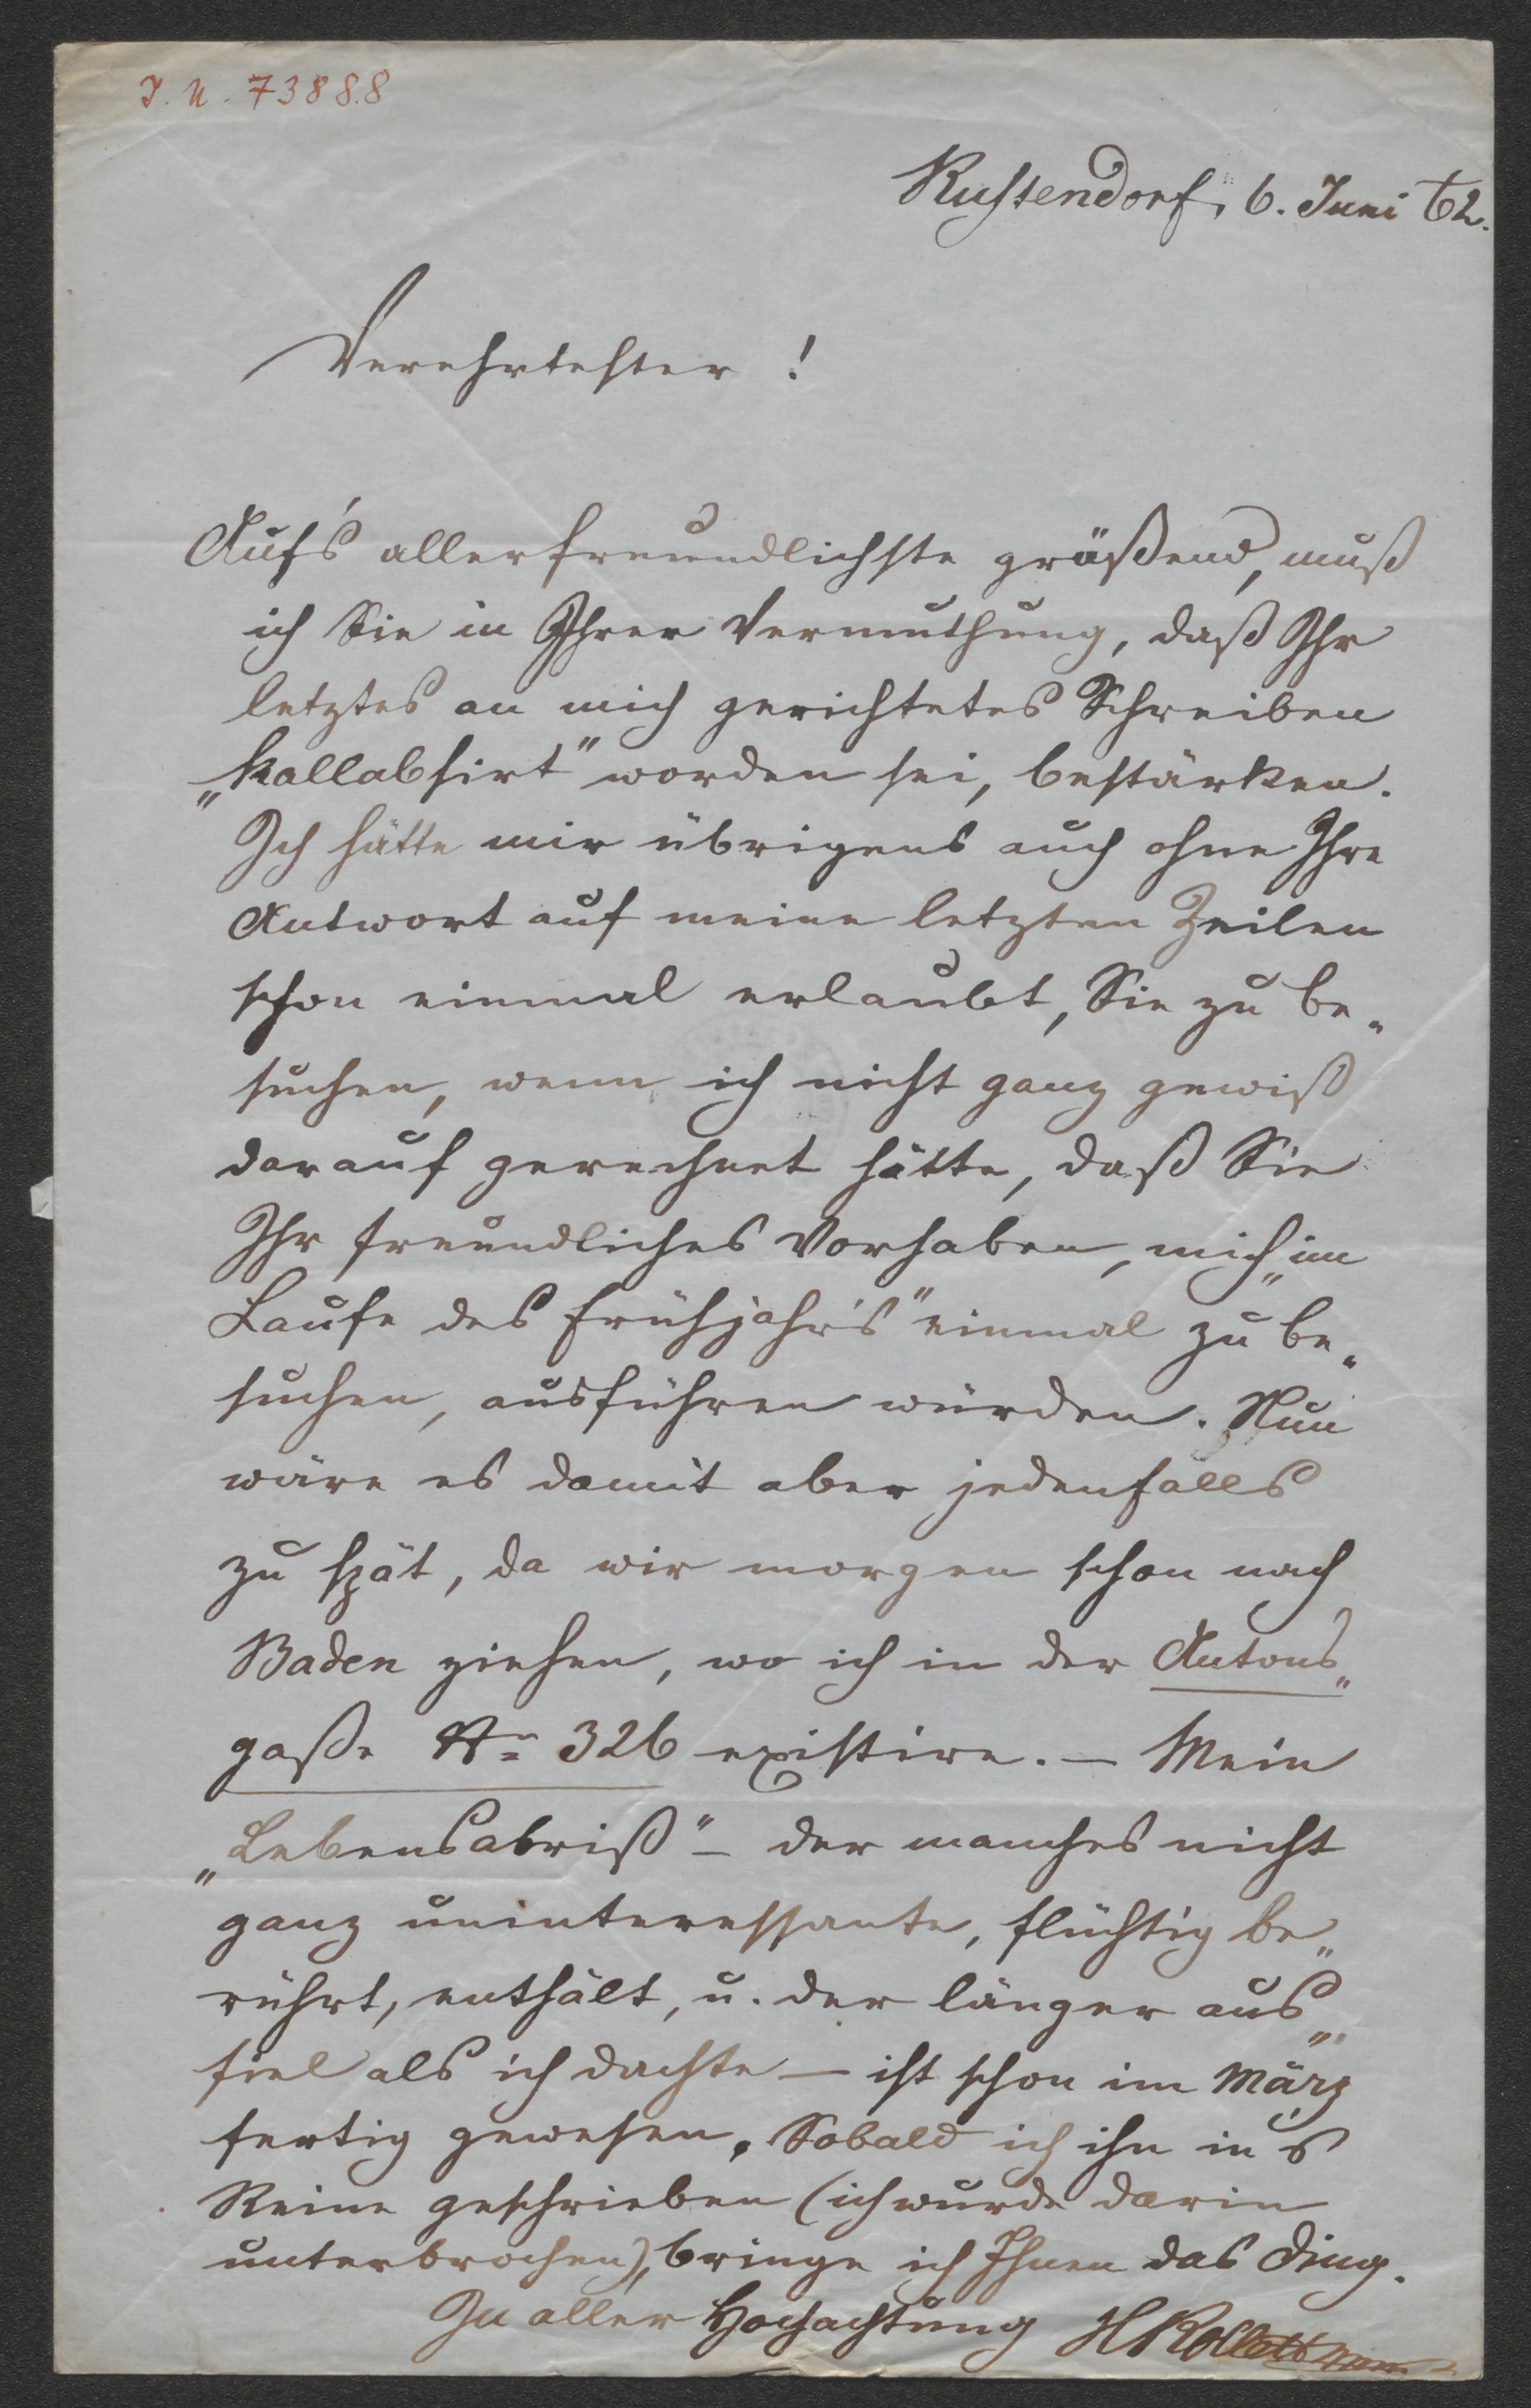 I. N. 73888
Rustendorf, 6. Juni 62.
Verehrtester!
Aufs' allerfreundlichste grüßend, muß
ich Sie in Ihrer Vermuthung, daß Ihr
letztes an mich gerichtetes Schreiben
„kallabsirt" worden sei, bestärken.
Ich hätte mir übrigens auch ohne Ihre
Antwort auf meine letzten Zeilen
schon einmal erlaubt, Sie zu be„
suchen, wenn ich nicht ganz gewiß
darauf gerechnet hätte, daß Sie
Ihr freundliches Vorhaben, mich „im
Laufe des Frühjahr's" einmal zu be„
suchen, ausführen würden. Nun
wäre es damit aber jedenfalls
zu spät, da wir morgen schon nach
Baden ziehen, wo ich in der Antons„
gasse No 326 existire. — Mein
„Lebensabriß" — der manches nicht
ganz uninteressante, flüchtig be„
rührt, enthält, u. der länger aus„
fiel als ich dachte — ist schon im März
fertig gewesen. Sobald ich ihn in's
Reine geschrieben (ich wurde darin
unterbrochen), bringe ich Ihnen das Ding.
In aller Hochachtung HRollett